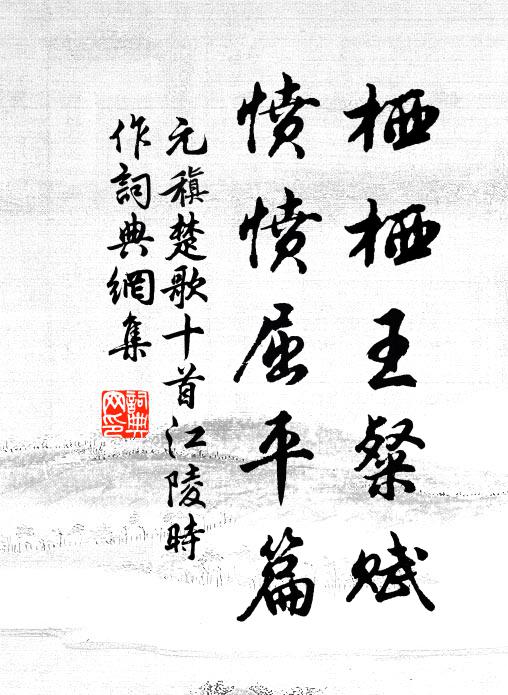 栖栖王粲赋
愤愤屈平篇
元稹楚歌十首江陵時
作詞典網集
詞典
网印